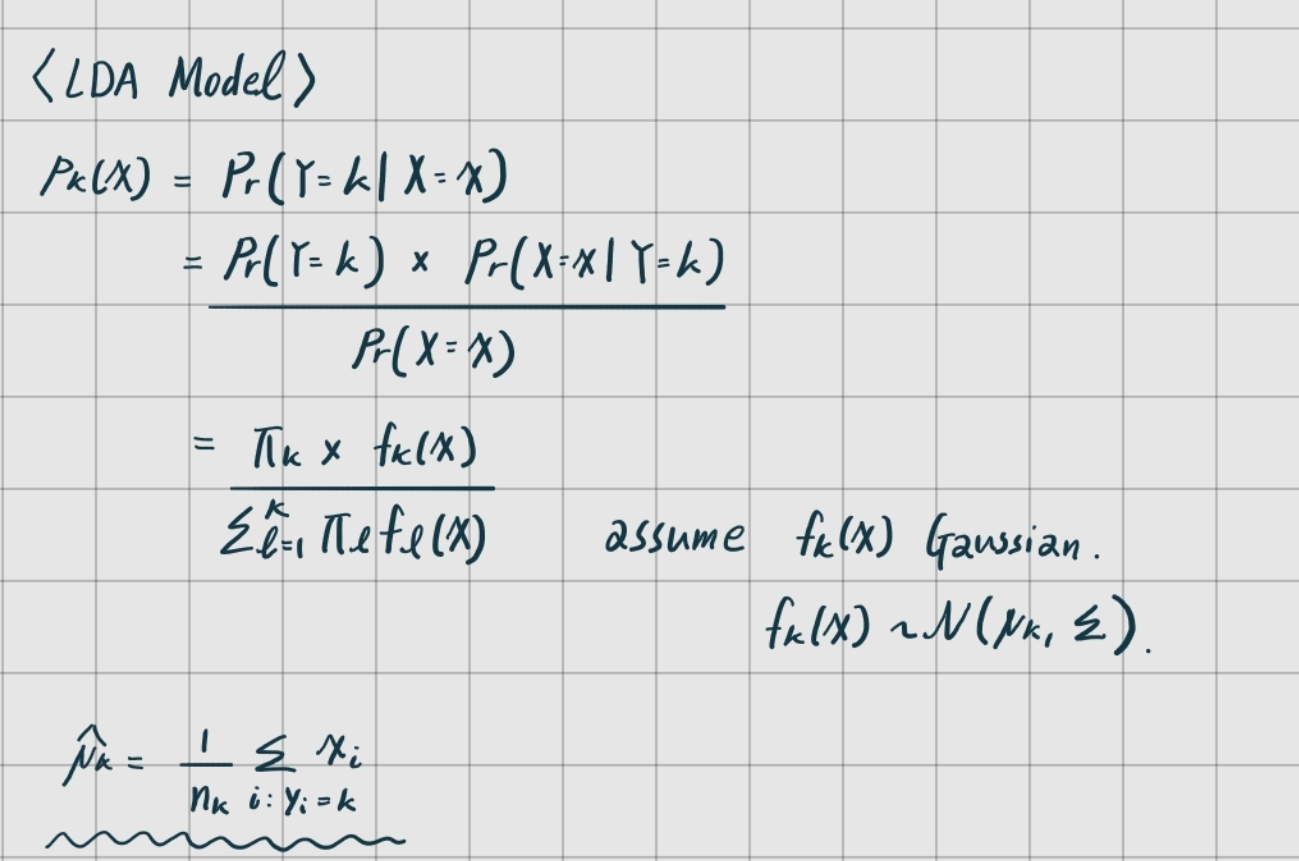 <LDA Model>
Pk(x) = Pr(Y=k | X=x)
= Pr(Y=k) × Pr(X=x | Y=k)
Pr(X=x)
= πk × fk(x)
Σℓ=1^K πℓ fℓ(x) assume fk(x) Gaussian.
fk(x) ~ N(μk, Σ).
μ̂k = 1/nk Σ xi
i: yi = k